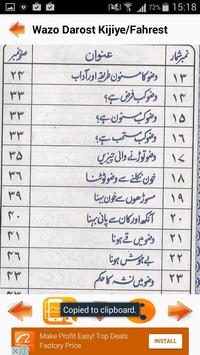 15:18
Wazo Darost Kijiye/Fahrest
نمبر شمار عنوان صفحہ نمبر
۱۳ وضو کا مسنون طریقہ اور آداب ۲۴
۱۴ وضو کب فرض ہے؟ ۳۳
۱۵ وضو کب ہے؟ ۳۳
۱۶ وضو کب مستحب ہے؟
۱۷ وضو توڑنے والی چیزیں ۳۵
۱۸ خون نکلنے سے وضو ٹوٹنا ۳۵
۱۹ مسوڑھوں سے خون بہنا ۳۹
۲۰ آنکھ اور کان سے پانی بہنا ۴۰
۲۱ وضو میں قے ہونا
۲۲ بے ہوش ہونا
۲۳ وضو میں نشہ کا حکم
Copied to clipboard.
Make Profit Easy! Top Deals
Factory Price
INSTALL